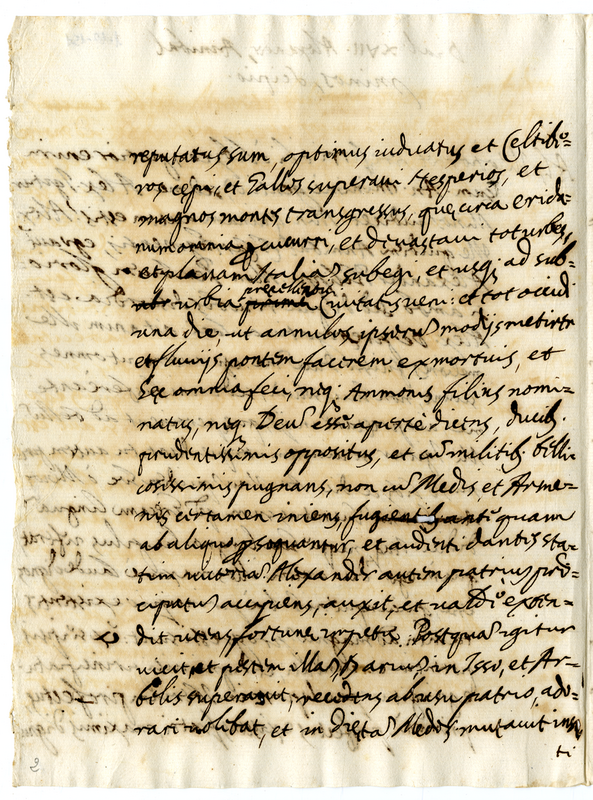 reputatus sum, optimus iudicatus et Celtibē=
ros cepi, et Gallos superavi Hesperios, et
magnos montes transgressus, quę circa erida=
num omnia ꝑcucurri, et devastavi tot urbes,
et planam Italiã subegi, et usq; ad sub=
urbia preexcellentis Civitatis veni: et tot occidi
una die, ut annulos ipsorũ modijs metirer
et fluvijs pontem facerem ex mortuis, et
hęc omnia feci, neq; Ammonis filius nomi=
natus, neq. Deũ esse aperte dicens, ducib.
prudentissimis oppositus, et cũ militib. belli=
cosissimis pugnans, non cũ Medis et Arme=
nis certamen iniens, antē quam
ab aliquo ꝑsequantur, et audenti dantis sta=
tim victoriã. Alexander autem patrium prĩ=
cipatũ accipiens, auxit, et valdē exten=
dit utens fortunę impetu. Postquã igitur
vicit, et pestem illã Dariũ, in Isso, et Ar=
belis superavit, recedens ab usu patrio, ado=
rari volibat, et in dietã Medos mutavit
ti
2